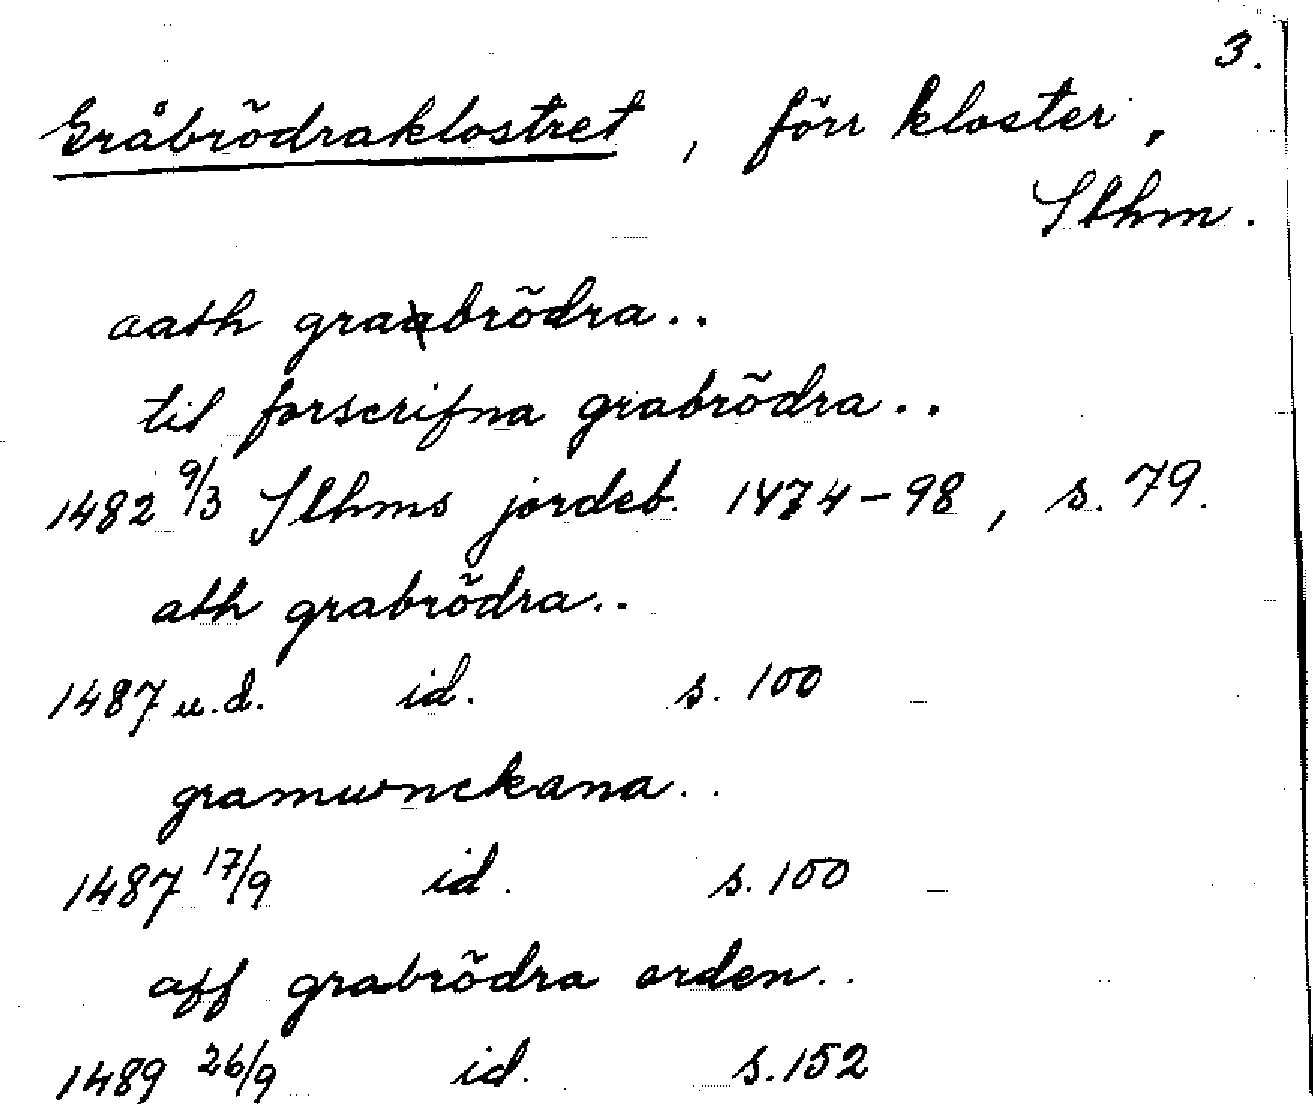 3.
Gråbrödraklostret, förr kloster,
Sthm.
aath grabrödra..
til forscrifna grabrödra..
1482 9/3 Sthms jordeb. 1474-98, s. 79.
ath grabrödra..
1487 u.d. id. s. 100
gramwnckana..
1487 17/9 id. s. 100
aff grabrödra orden..
1489 26/9 id. s. 152